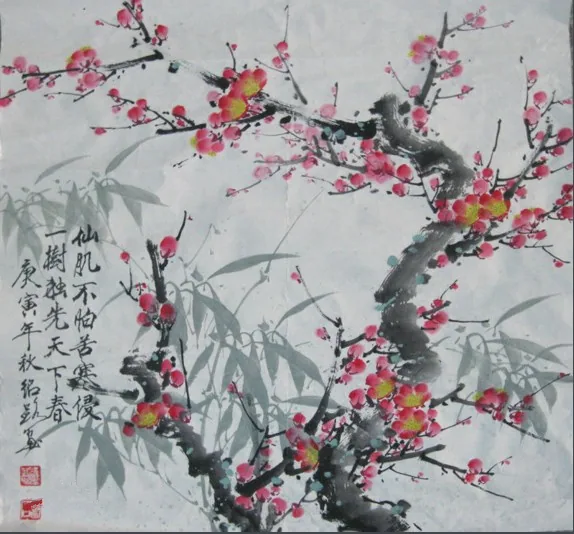 仙肌不怕苦寒侵
一樹独先天下春
庚寅年秋绍